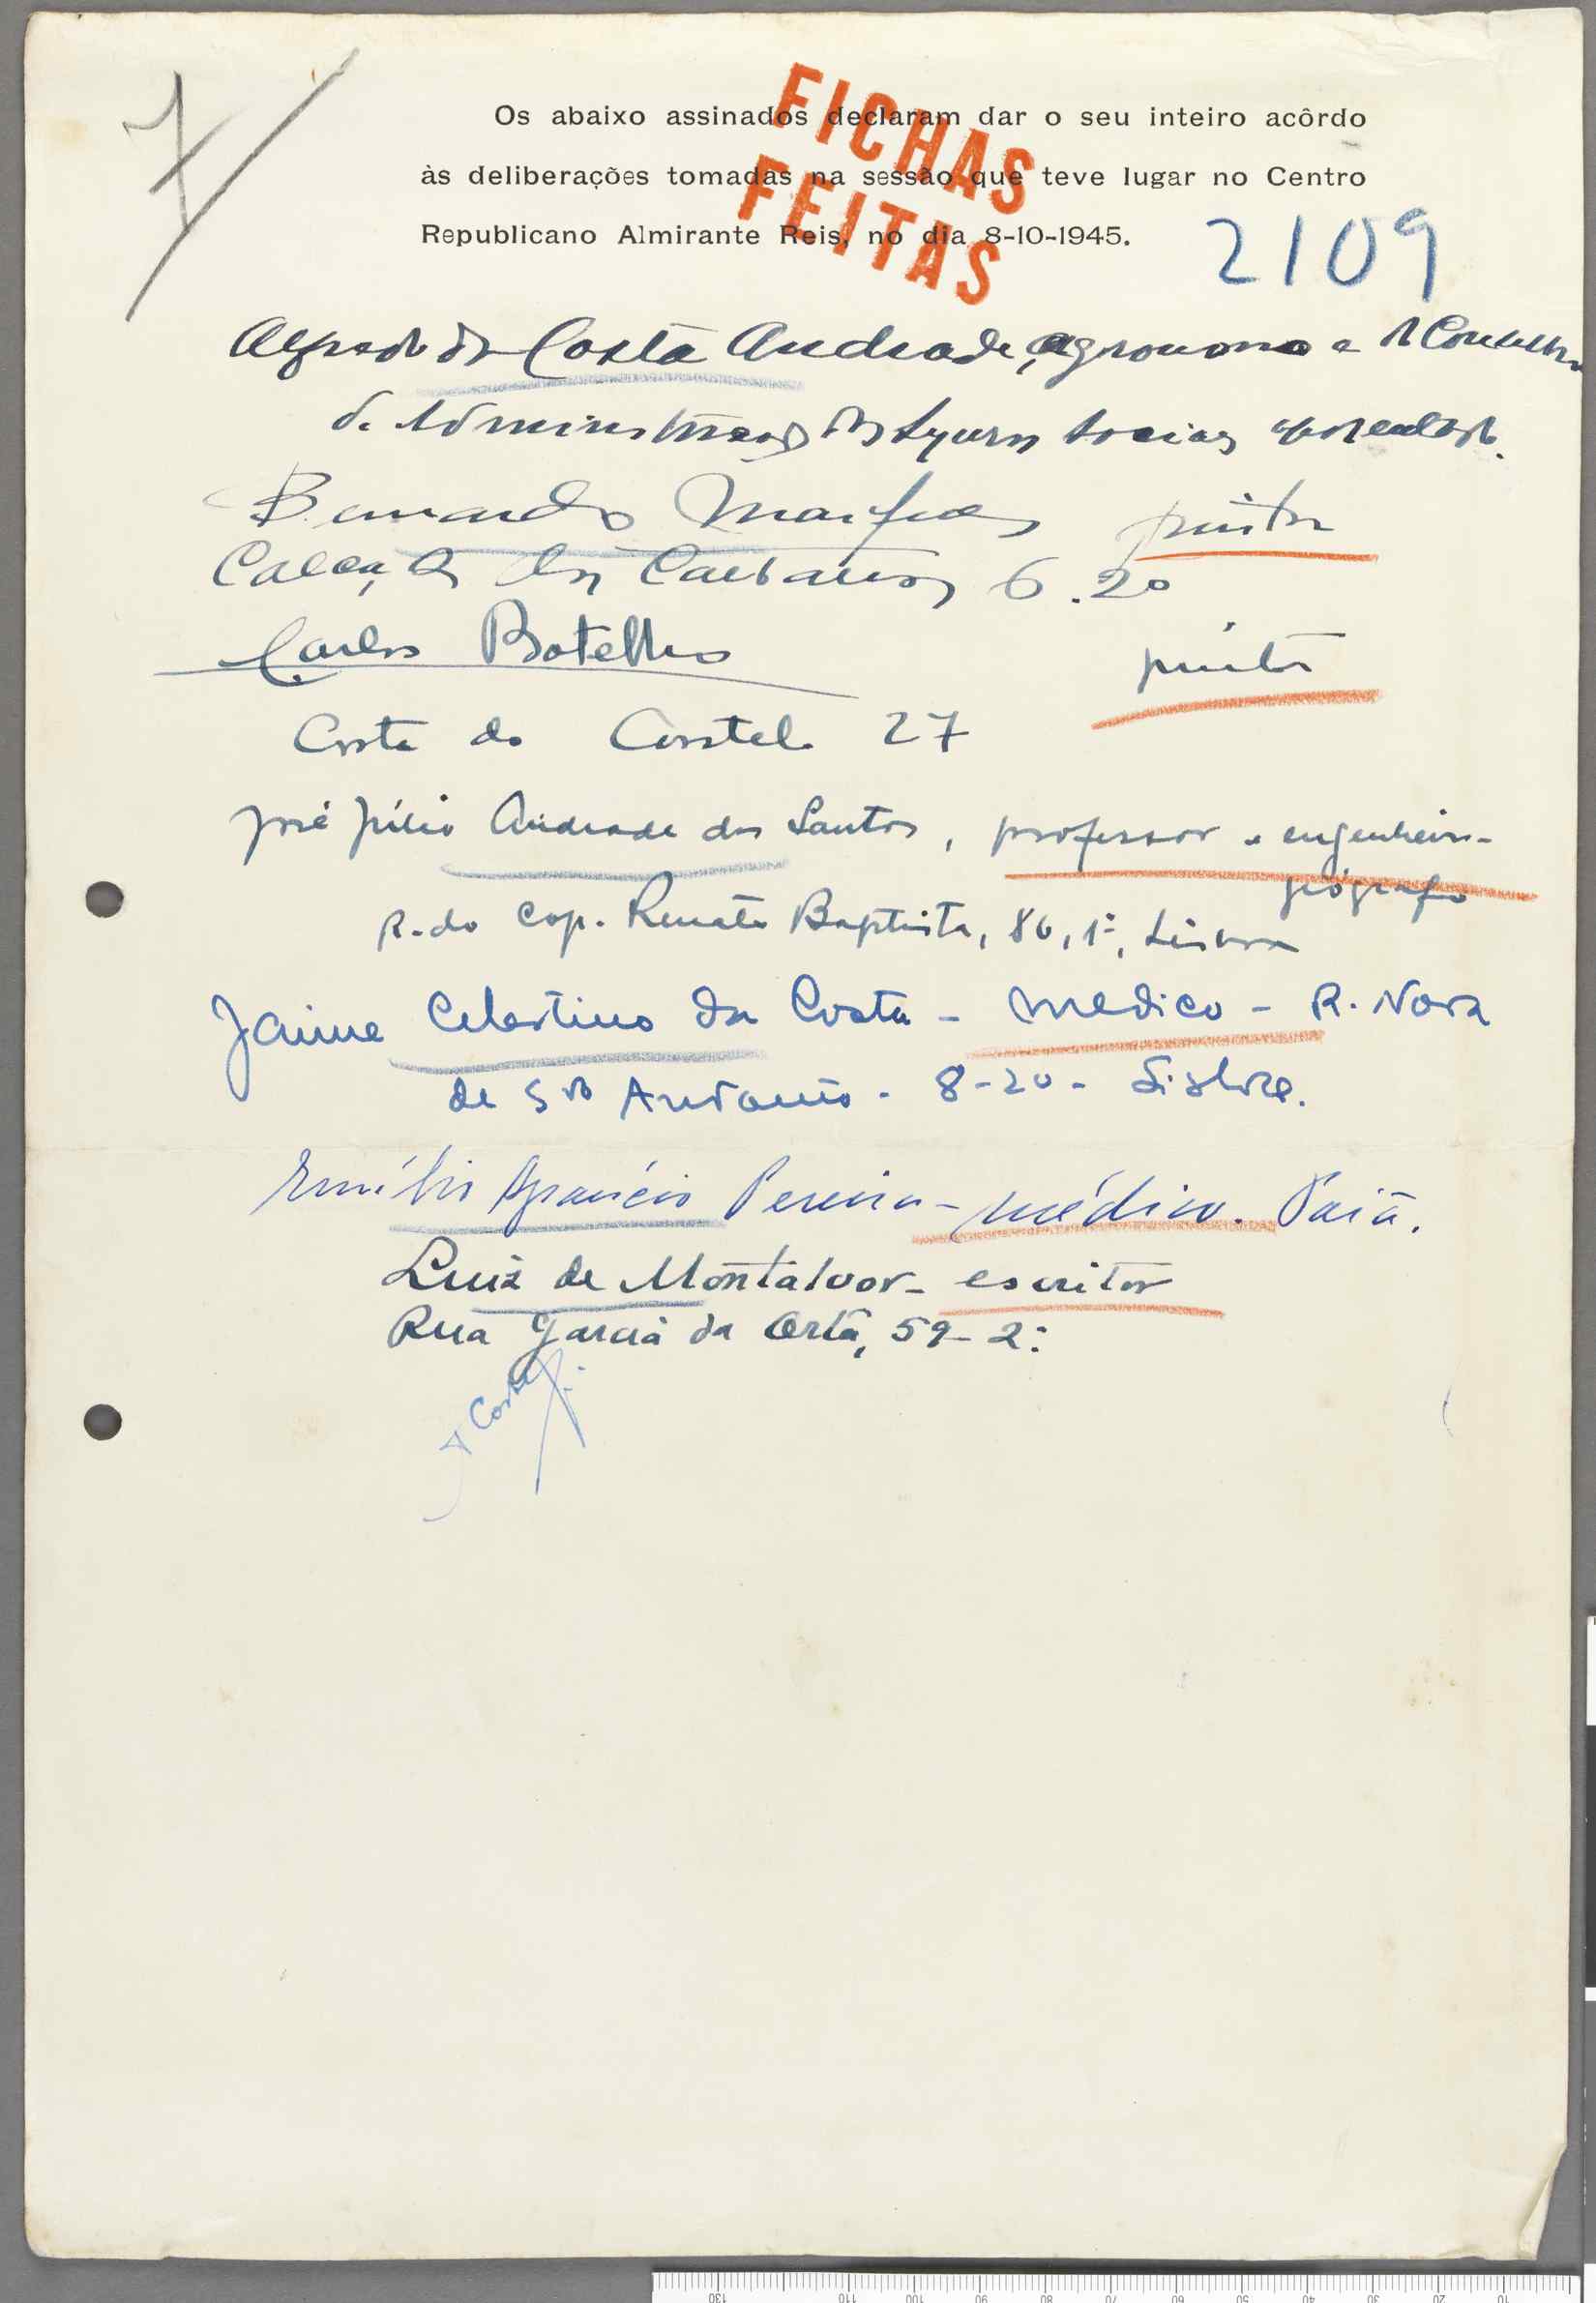 7
FICHAS
FEITAS
Os abaixo assinados declaram dar o seu inteiro acôrdo
às deliberações tomadas na sessão que teve lugar no Centro
Republicano Almirante Reis, no dia 8-10-1945.
2109
Alfredo da Costa Andrade, agronomo e
de Administração dos Seguros Sociais aposentado.
Bernardo Marques pintor
Calçada dos Caetanos 6.2º
Carlos Botelho pintor
Costa do Castelo 27
José Júlio Andrade dos Santos, professor e engenheiro-
geógrafo
R. do Cap. Renato Baptista, 86, 1º, Lisboa
Jaime Celestino da Costa - Medico - R. Nova
de Sto Antonio - 8-2º - Lisboa.
Emílio Aparício Pereira - médico. Paiã.
Luiz de Montalvor - escritor
Rua Garcia da Orta, 59-2º